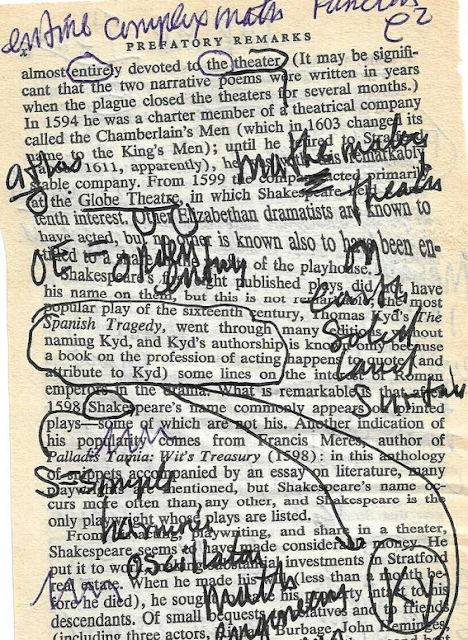 entire complex math
PREFATORY REMARKS
almost entirely devoted to the theater. (It may be signifi-
cant that the two narrative poems were written in years
when the plague closed the theaters for several months.)
In 1594 he was a charter member of a theatrical company
called the Chamberlain's Men (which in 1603 changed its
name to the King's Men); until he retired to Stratford
1611, apparently), he was remarkably
able company. From 1599 the company acted primarily
at the Globe Theatre, in which Shakespeare held a
tenth interest. Other Elizabethan dramatists are known to
have acted, but is known also to have been en-
titled to a share of the playhouse.
Shakespeare's first published plays did not have
his name on them, but this is not remarkable; the most
popular play of the sixteenth century, Thomas Kyd's The
Spanish Tragedy, went through many editions without
naming Kyd, and Kyd's authorship is known only because
a book on the profession of acting happens to quote (and
attribute to Kyd) some lines on the interest of Roman
emperors in the drama. What is remarkable is that after
1598 Shakespeare's name commonly appears on printed
plays—some of which are not his. Another indication of
his popularity comes from Francis Meres, author of
Palladis Tamia: Wit's Treasury (1598): in this anthology
of snippets accompanied by an essay on literature, many
playwrights are mentioned, but Shakespeare's name oc-
curs more often than any other, and Shakespeare is the
only playwright whose plays are listed.
From his acting, playwriting, and share in a theater,
Shakespeare seems to have made considerable money. He
put it to work, making substantial investments in Stratford
real estate. When he made his will (less than a month be-
fore he died), he sought to leave his property intact to his
descendants. Of small bequests to relatives and to friends
(including three actors, Burbage, John Heminges,
atlas
on
simple
harmonic
oscillator
math
engineering